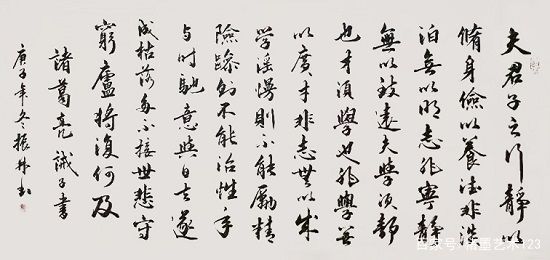 夫君子之行靜以
脩身儉以養德非澹
泊無以明志非寧靜
無以致遠夫學須靜
也才須學也非學無
以廣才非志無以成
學淫慢則不能勵精
險躁則不能治性年
与时馳意與日去遂
成枯落多不接世悲守
窮廬將復何及
諸葛亮誡子書
庚子年冬振林书
百家号/精墨艺术123